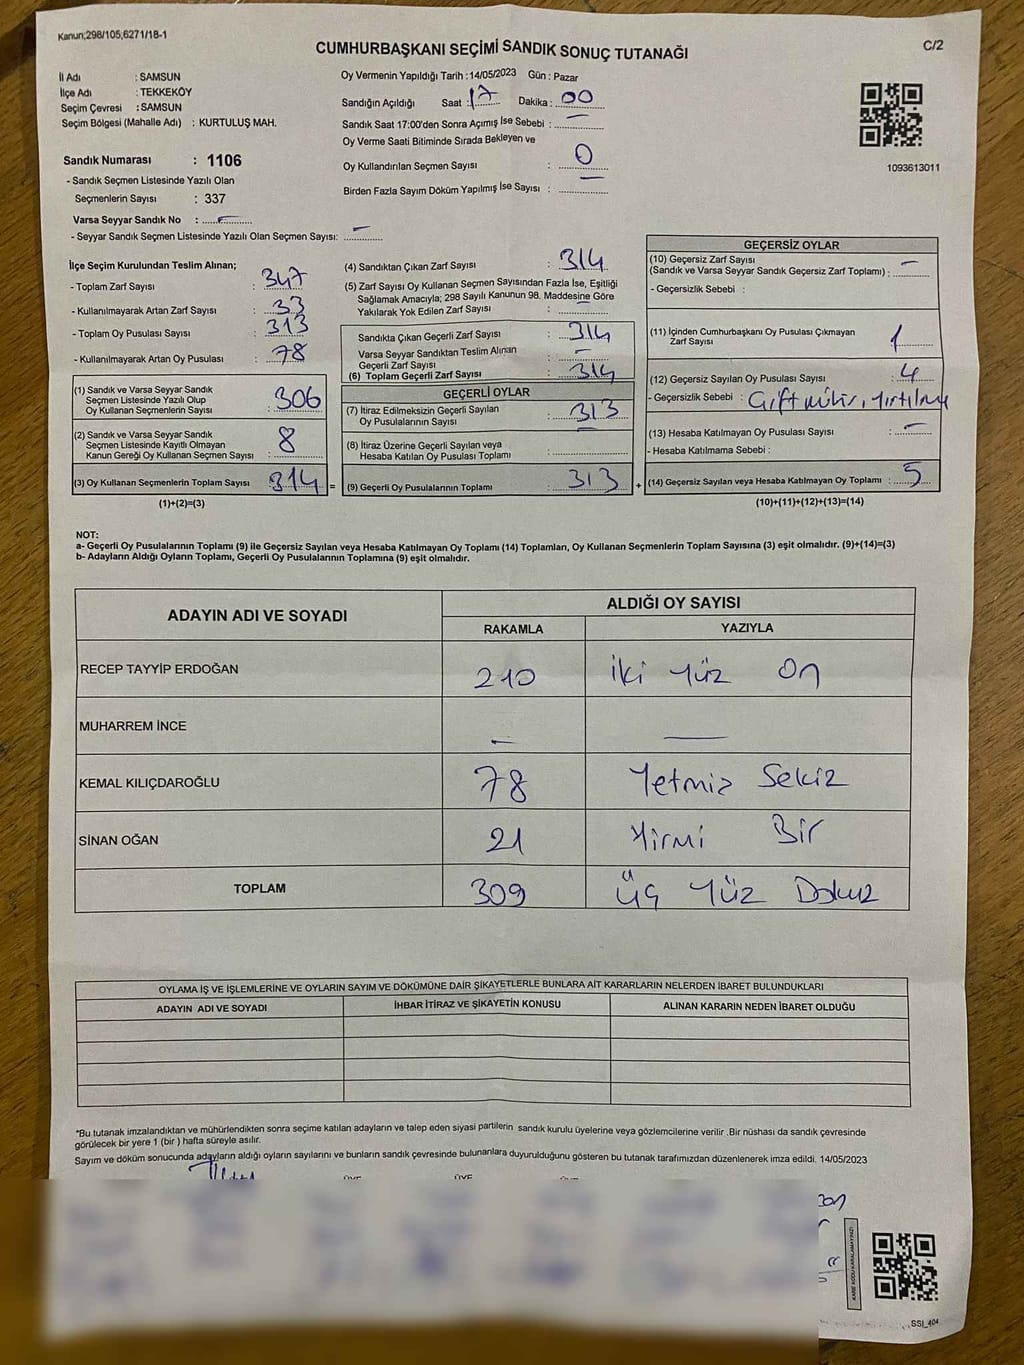 Kanun;298/105,6271/18-1
C/2
CUMHURBAŞKANI SEÇİMİ SANDIK SONUÇ TUTANAĞI
İl Adı : SAMSUN
İlçe Adı : TEKKEKÖY
Seçim Çevresi : SAMSUN
Seçim Bölgesi (Mahalle Adı) : KURTULUŞ MAH.
Sandık Numarası : 1106
- Sandık Seçmen Listesinde Yazılı Olan
Seçmenlerin Sayısı : 337
Varsa Seyyar Sandık No : -
- Seyyar Sandık Seçmen Listesinde Yazılı Olan Seçmen Sayısı: -
Oy Vermenin Yapıldığı Tarih :14/05/2023 Gün : Pazar
Sandığın Açıldığı Saat :17 Dakika : 00
Sandık Saat 17:00'den Sonra Açımış İse Sebebi : -
Oy Verme Saati Bitiminde Sırada Bekleyen ve
Oy Kullandırılan Seçmen Sayısı : 0
Birden Fazla Sayım Döküm Yapılmış İse Sayısı : -
1093613011
İlçe Seçim Kurulundan Teslim Alınan;
- Toplam Zarf Sayısı : 347
- Kullanılmayarak Artan Zarf Sayısı : 33
- Toplam Oy Pusulası Sayısı : 313
- Kullanılmayarak Artan Oy Pusulası : 78
(1) Sandık ve Varsa Seyyar Sandık
Seçmen Listesinde Yazılı Olup
Oy Kullanan Seçmenlerin Sayısı : 306
(2) Sandık ve Varsa Seyyar Sandık
Seçmen Listesinde Kayıtlı Olmayan
Kanun Gereği Oy Kullanan Seçmen Sayısı : 8
(3) Oy Kullanan Seçmenlerin Toplam Sayısı : 314 =
(1)+(2)=(3)
(4) Sandıktan Çıkan Zarf Sayısı : 314
(5) Zarf Sayısı Oy Kullanan Seçmen Sayısından Fazla İse, Eşitliği
Sağlamak Amacıyla; 298 Sayılı Kanunun 98. Maddesine Göre
Yakılarak Yok Edilen Zarf Sayısı : -
Sandıkta Çıkan Geçerli Zarf Sayısı : 314
Varsa Seyyar Sandıktan Teslim Alınan
Geçerli Zarf Sayısı : -
(6) Toplam Geçerli Zarf Sayısı : 314
GEÇERLİ OYLAR
(7) İtiraz Edilmeksizin Geçerli Sayılan
Oy Pusulalarının Sayısı : 313
(8) İtiraz Üzerine Geçerli Sayılan veya
Hesaba Katılan Oy Pusulası Toplamı : -
(9) Geçerli Oy Pusulalarının Toplamı : 313 +
GEÇERSİZ OYLAR
(10) Geçersiz Zarf Sayısı
(Sandık ve Varsa Seyyar Sandık Geçersiz Zarf Toplamı) : -
- Geçersizlik Sebebi :
(11) İçinden Cumhurbaşkanı Oy Pusulası Çıkmayan
Zarf Sayısı : 1
(12) Geçersiz Sayılan Oy Pusulası Sayısı : 4
- Geçersizlik Sebebi : Çift mühür, yırtılma
(13) Hesaba Katılmayan Oy Pusulası Sayısı : -
- Hesaba Katılmama Sebebi :
(14) Geçersiz Sayılan veya Hesaba Katılmayan Oy Toplamı : 5
(10)+(11)+(12)+(13)=(14)
NOT:
a- Geçerli Oy Pusulalarının Toplamı (9) ile Geçersiz Sayılan veya Hesaba Katılmayan Oy Toplamı (14) Toplamları, Oy Kullanan Seçmenlerin Toplam Sayısına (3) eşit olmalıdır. (9)+(14)=(3)
b- Adayların Aldığı Oyların Toplamı, Geçerli Oy Pusulalarının Toplamına (9) eşit olmalıdır.
ADAYIN ADI VE SOYADI
ALDIĞI OY SAYISI
RAKAMLA YAZIYLA
RECEP TAYYİP ERDOĞAN 210 İki Yüz On
MUHARREM İNCE - -
KEMAL KILIÇDAROĞLU 78 Yetmiş Sekiz
SİNAN OĞAN 21 Yirmi Bir
TOPLAM 309 Üç Yüz Dokuz
OYLAMA İŞ VE İŞLEMLERİNE VE OYLARIN SAYIM VE DÖKÜMÜNE DAİR ŞİKAYETLERLE BUNLARA AİT KARARLARIN NELERDEN İBARET BULUNDUKLARI
ADAYIN ADI VE SOYADI İHBAR İTİRAZ VE ŞİKAYETİN KONUSU ALINAN KARARIN NEDEN İBARET OLDUĞU
*Bu tutanak imzalandıktan ve mühürlendikten sonra seçime katılan adayların ve talep eden siyasi partilerin sandık kurulu üyelerine veya gözlemcilerine verilir .Bir nüshası da sandık çevresinde
görülecek bir yere 1 (bir ) hafta süreyle asılır.
Sayım ve döküm sonucunda adayların aldığı oyların sayılarını ve bunların sandık çevresinde bulunanlara duyurulduğunu gösteren bu tutanak tarafımızdan düzenlenerek imza edildi. 14/05/2023
ÜYE
SSI_404